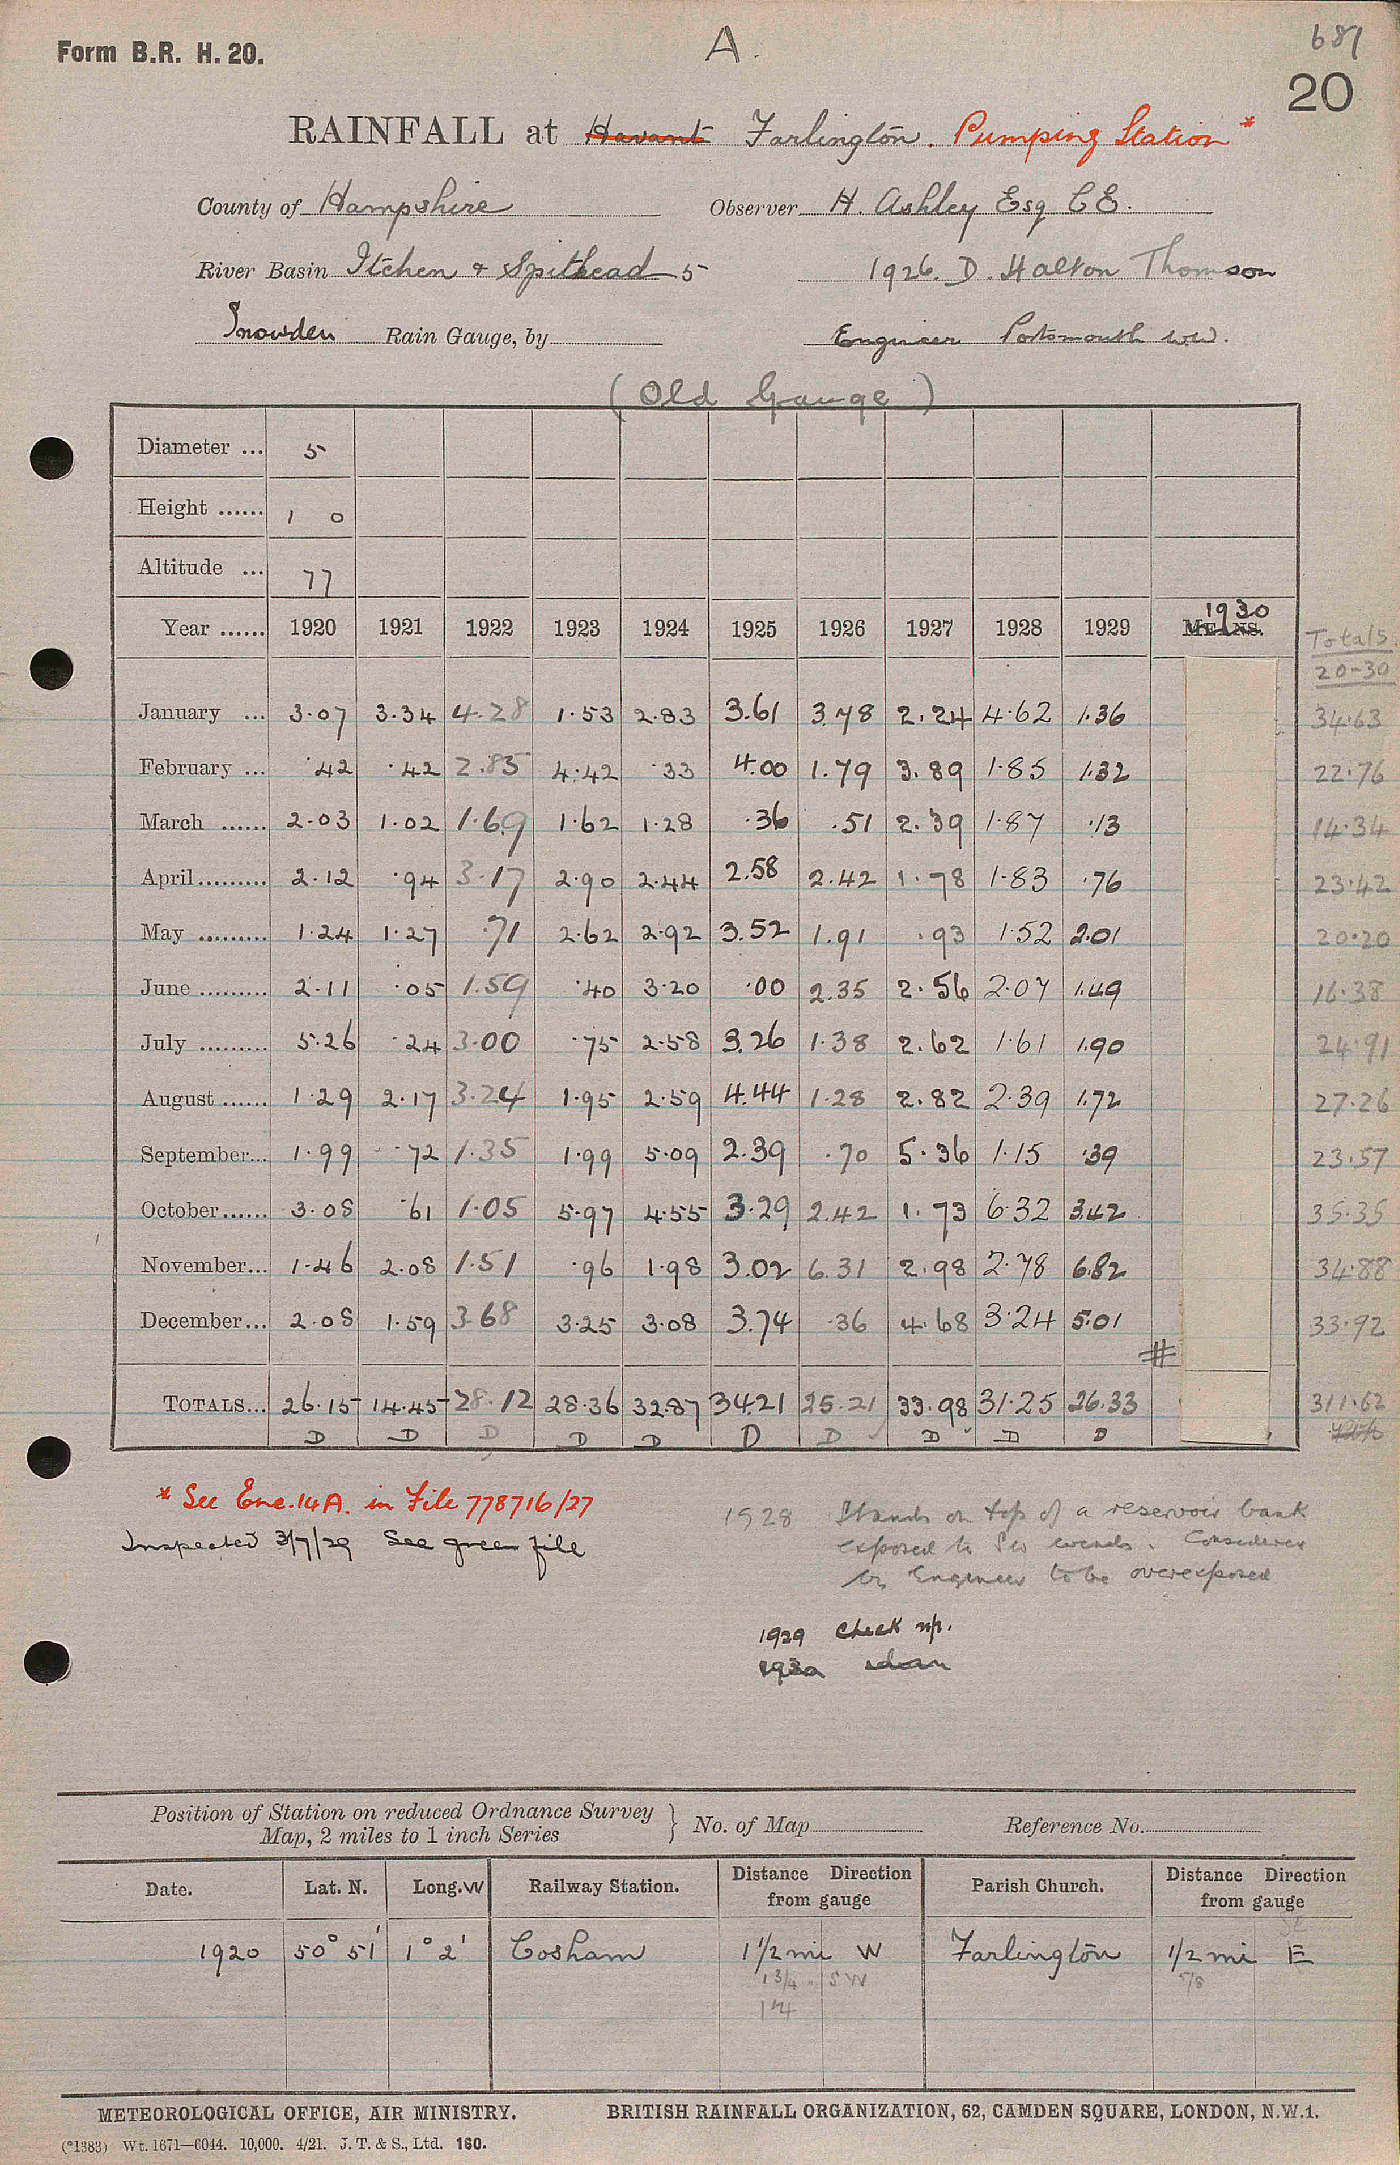 Form B.R. H. 20.
A.
681
20
RAINFALL at Havant Farlington. Pumping Station *
County of Hampshire Observer H. Ashley Esq C E.
River Basin Itchen & Spithead 5 1926. D. Halton Thomson
Snowden Rain Gauge, by Engineer Portsmouth W.W.
(Old Gauge)
Diameter ... 5
Height ...... 1 0
Altitude ... 77
Year ...... 1920 1921 1922 1923 1924 1925 1926 1927 1928 1929 MEANS. 1930 Totals 20-30
January ... 3.07 3.34 4.28 1.53 2.83 3.61 3.78 2.24 4.62 1.36 34.63
February ... .42 .42 2.85 4.42 .33 4.00 1.79 3.89 1.85 1.32 22.76
March ...... 2.03 1.02 1.69 1.62 1.28 .36 .51 2.39 1.87 .13 14.34
April......... 2.12 .94 3.17 2.90 2.44 2.58 2.42 1.78 1.83 .76 23.42
May ......... 1.24 1.27 .71 2.62 2.92 3.52 1.91 .93 1.52 2.01 20.20
June ......... 2.11 .05 1.59 .40 3.20 .00 2.35 2.56 2.07 1.49 16.38
July ......... 5.26 .24 3.00 .75 2.58 3.26 1.38 2.62 1.61 1.90 24.91
August ...... 1.29 2.17 3.24 1.95 2.59 4.44 1.28 2.82 2.39 1.72 27.26
September... 1.99 .72 1.35 1.99 5.09 2.39 .70 5.36 1.15 .39 23.57
October...... 3.08 .61 1.05 5.97 4.55 3.29 2.42 1.73 6.32 3.42 35.35
November... 1.46 2.08 1.51 .96 1.98 3.02 6.31 2.98 2.78 6.82 34.88
December... 2.08 1.59 3.68 3.25 3.08 3.74 .36 4.68 3.24 5.01 33.92
#
TOTALS... 26.15 14.45 28.12 28.36 32.87 34.21 25.21 33.98 31.25 26.33 311.62
D D D D D D D D D D
* See Enc. 14A. in File 778716/27
Inspected 3/7/29 See green file
1928 Stands on top of a reservoir bank
exposed to SW winds. Considered
by Engineer to be overexposed
1929 Check up.
Position of Station on reduced Ordnance Survey
Map, 2 miles to 1 inch Series } No. of Map Reference No.
Date. Lat. N. Long. W Railway Station. Distance Direction from gauge Parish Church. Distance Direction from gauge
1920 50° 51' 1° 2' Cosham 1 1/2 mi W Farlington 1/2 mi E
1 3/4 SW 5/8
METEOROLOGICAL OFFICE, AIR MINISTRY. BRITISH RAINFALL ORGANIZATION, 62, CAMDEN SQUARE, LONDON, N.W.1.
(*1383) Wt. 1671—6044. 10,000. 4/21. J. T. & S., Ltd. 160.